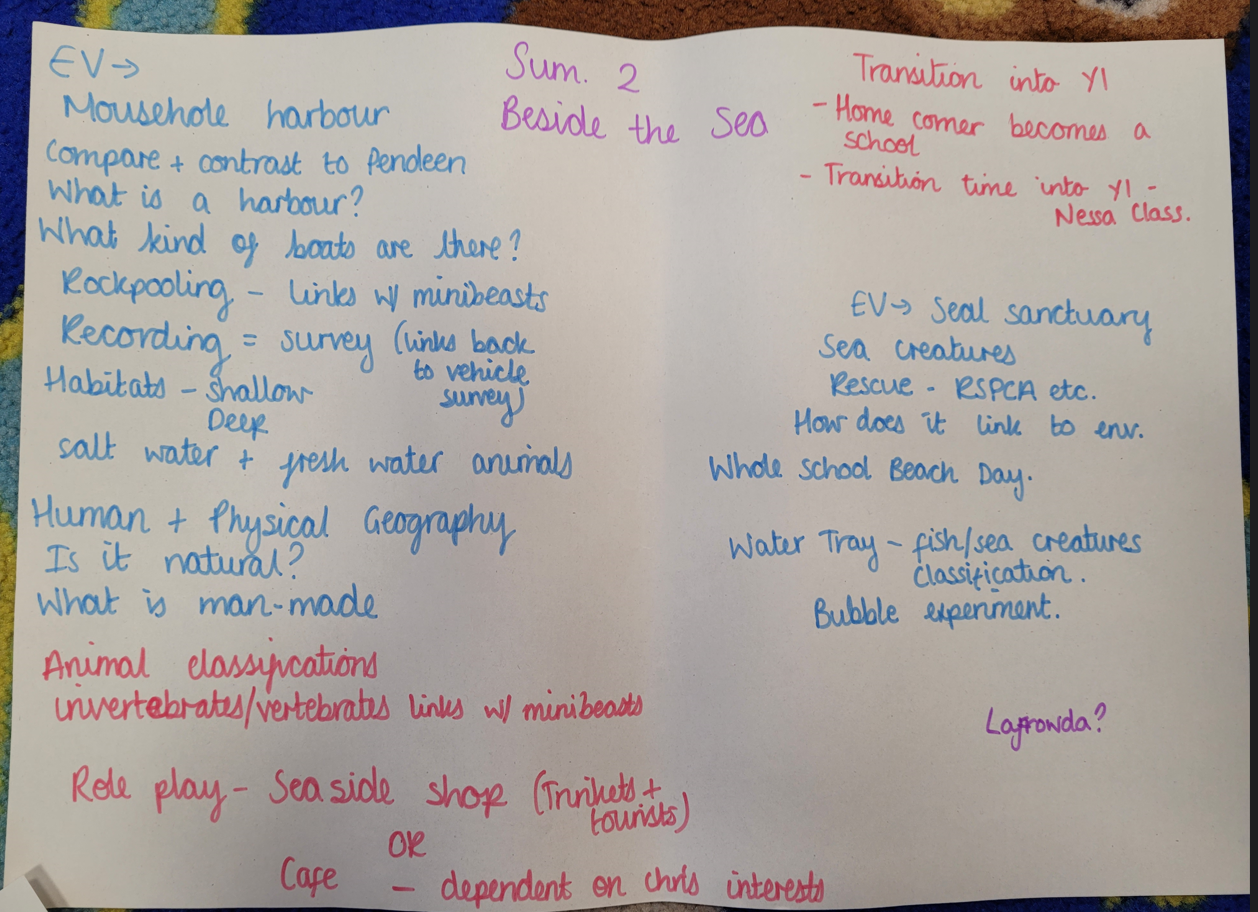 Sum. 2
Beside the Sea
EV→
Mousehole harbour
Compare + contrast to Pendeen
What is a harbour?
What kind of boats are there?
Rockpooling - links w/ minibeasts
Recording = survey (links back
to vehicle
survey)
Habitats - shallow
Deep
salt water + fresh water animals
Human + Physical Geography
Is it natural?
What is man-made
Animal classifications
invertebrates/vertebrates links w/ minibeasts
Role play - Sea side shop (Trinkets +
tourists)
OR
Cafe - dependent on chris interests
Transition into Y1
- Home corner becomes a
school
- Transition time into Y1 -
Nessa Class.
EV→ Seal sanctuary
Sea creatures
Rescue - RSPCA etc.
How does it link to env.
Whole School Beach Day.
Water Tray - fish/sea creatures
classification.
Bubble experiment.
Lafrowda?